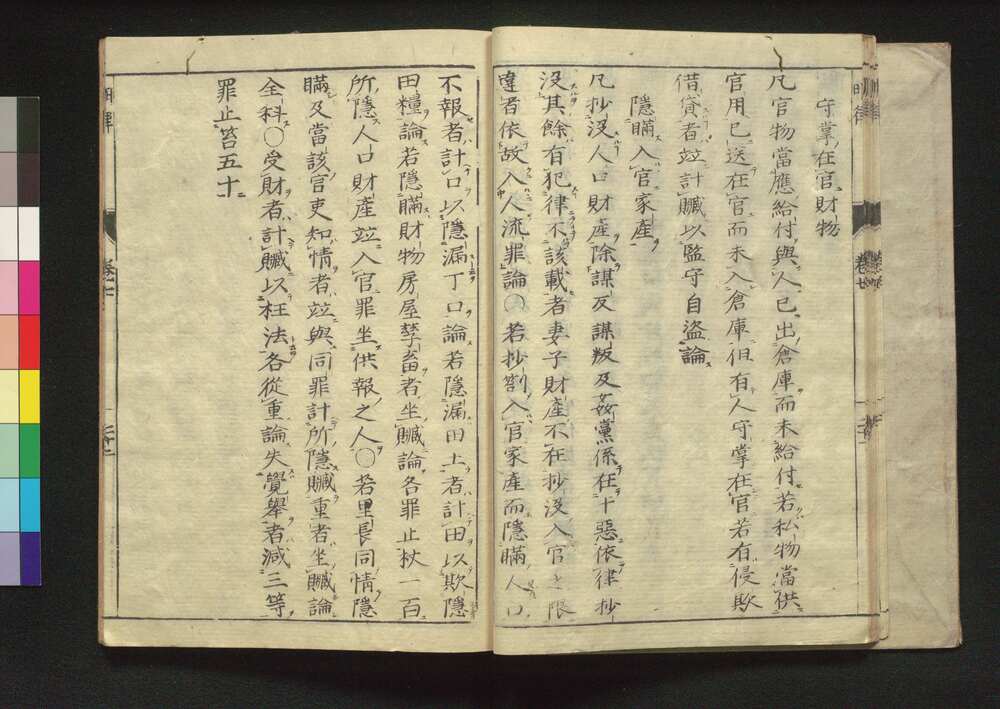 守掌在官財物
凡官物當應給付與人已出倉庫而未給付若私物當供
官用已送在官而未入倉庫但有人守掌在官若有侵欺
借貸者竝計贓以監守自盜論
隱瞞入官家產
凡抄沒人口財產除謀反謀叛及姦黨係在十惡依律抄
沒其餘有犯律不該載者妻子財產不在抄沒入官之限
違者依故入人流罪論〇若抄劄入官家產而隱瞞人口
不報者計口以隱漏丁口論若隱漏田土者計田以欺隱
田糧論若隱瞞財物房屋孳畜者坐贓論各罪止杖一百
所隱人口財產竝入官罪坐供報之人〇若里長同情隱
瞞及當該官吏知情者竝與同罪計所隱贓重者坐贓論
全科〇受財者計贓以枉法各從重論失覺舉者減三等
罪止笞五十